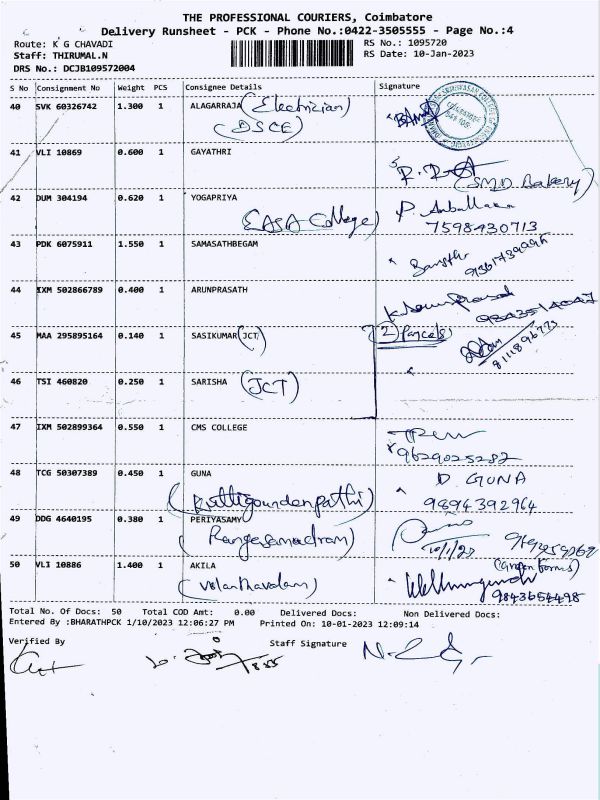 THE PROFESSIONAL COURIERS, Coimbatore
Delivery Runsheet - PCK - Phone No.:0422-3505555 - Page No.:4
Route: K G CHAVADI
RS No.: 1095720
Staff: THIRUMAL.N
RS Date: 10-Jan-2023
DRS No.: DCJB109572004
S No Consignment No Weight PCS Consignee Details Signature
40 SVK 60326742 1.300 1 ALAGARRAJA (Electrician)
(DSCE)
41 VLI 10869 0.600 1 GAYATHRI
(SMD Bakery)
42 DUM 304194 0.620 1 YOGAPRIYA
(EASA College) 7598430713
43 PDK 6075911 1.550 1 SAMASATHBEGAM
44 IXM 502866789 0.400 1 ARUNPRASATH
45 MAA 295895164 0.140 1 SASIKUMAR (JCT) (2) Parcels)
8111896773
46 TSI 460820 0.250 1 SARISHA (JCT)
47 IXM 502899364 0.550 1 CMS COLLEGE
9629025282
48 TCG 50307389 0.450 1 GUNA D. GUNA
(Kuttigoundenpathi) 9894392964
49 DDG 4640195 0.380 1 PERIYASAMY
50 VLI 10886 1.400 1 AKILA
9843654498
Total No. Of Docs: 50 Total COD Amt: 0.00 Delivered Docs: Non Delivered Docs:
Entered By :BHARATHPCK 1/10/2023 12:06:27 PM Printed On: 10-01-2023 12:09:14
Verified By Staff Signature